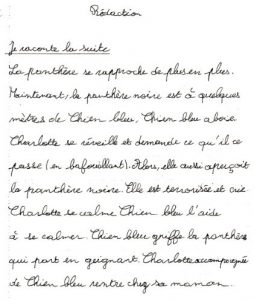 Rédaction
Je raconte la suite
La panthère se rapproche de plus en plus.
Maintenant, la panthère noire est à quelques
mètres de Chien bleu, Chien bleu aboie.
Charlotte se réveille et demande ce qu'il ce
passe (en bafouillant). Alors, elle aussi aperçoit
la pranthère noire. Elle est terrorisée et crie
Charlotte se calme Chien bleu l'aide
à se calmer Chien bleu griffe la panthère
qui part en geignant. Charlotte accompagnée
de Chien bleu rentre chez sa maman.